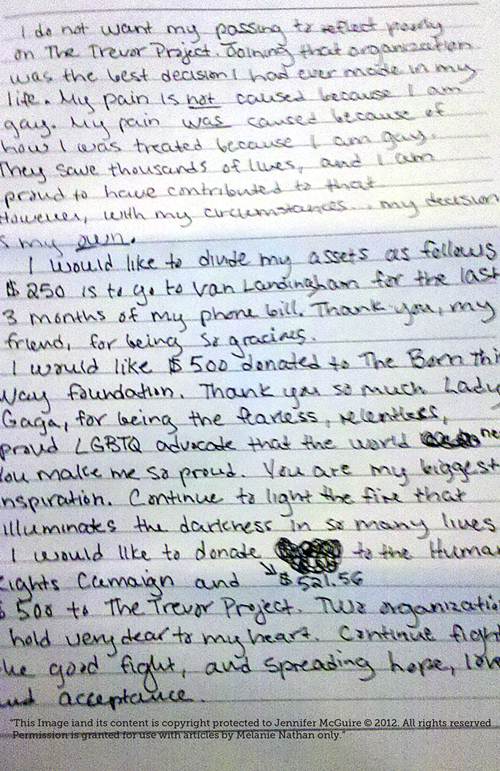 I do not want my passing to reflect poorly
on The Trevor Project. Joining that organization
was the best decision I had ever made in my
life. My pain is not caused because I am
gay. My pain was caused because of
how I was treated because I am gay.
They save thousands of lives, and I am
proud to have contributed to that.
However, with my circumstances... my decision
is my own.
I would like to divide my assets as follows
$250 is to go to Van Landingham for the last
3 months of my phone bill. Thank-you, my
friend, for being so gracious.
I would like $500 donated to The Born Thi
Way foundation. Thank you so much Lady
Gaga, for being the fearless, relentless,
proud LGBTQ advocate that the world ne
You make me so proud. You are my biggest
inspiration. Continue to light the fire that
illuminates the darkness in so many lives
I would like to donate to the Human
Rights Camaign and $521.56
$500 to The Trevor Project. Two organizatio
hold very dear to my heart. Continue fight
the good fight, and spreading hope, love
and acceptance.
"This Image iand its content is copyright protected to Jennifer McGuire © 2012. All rights reserved
Permission is granted for use with articles by Melanie Nathan only."